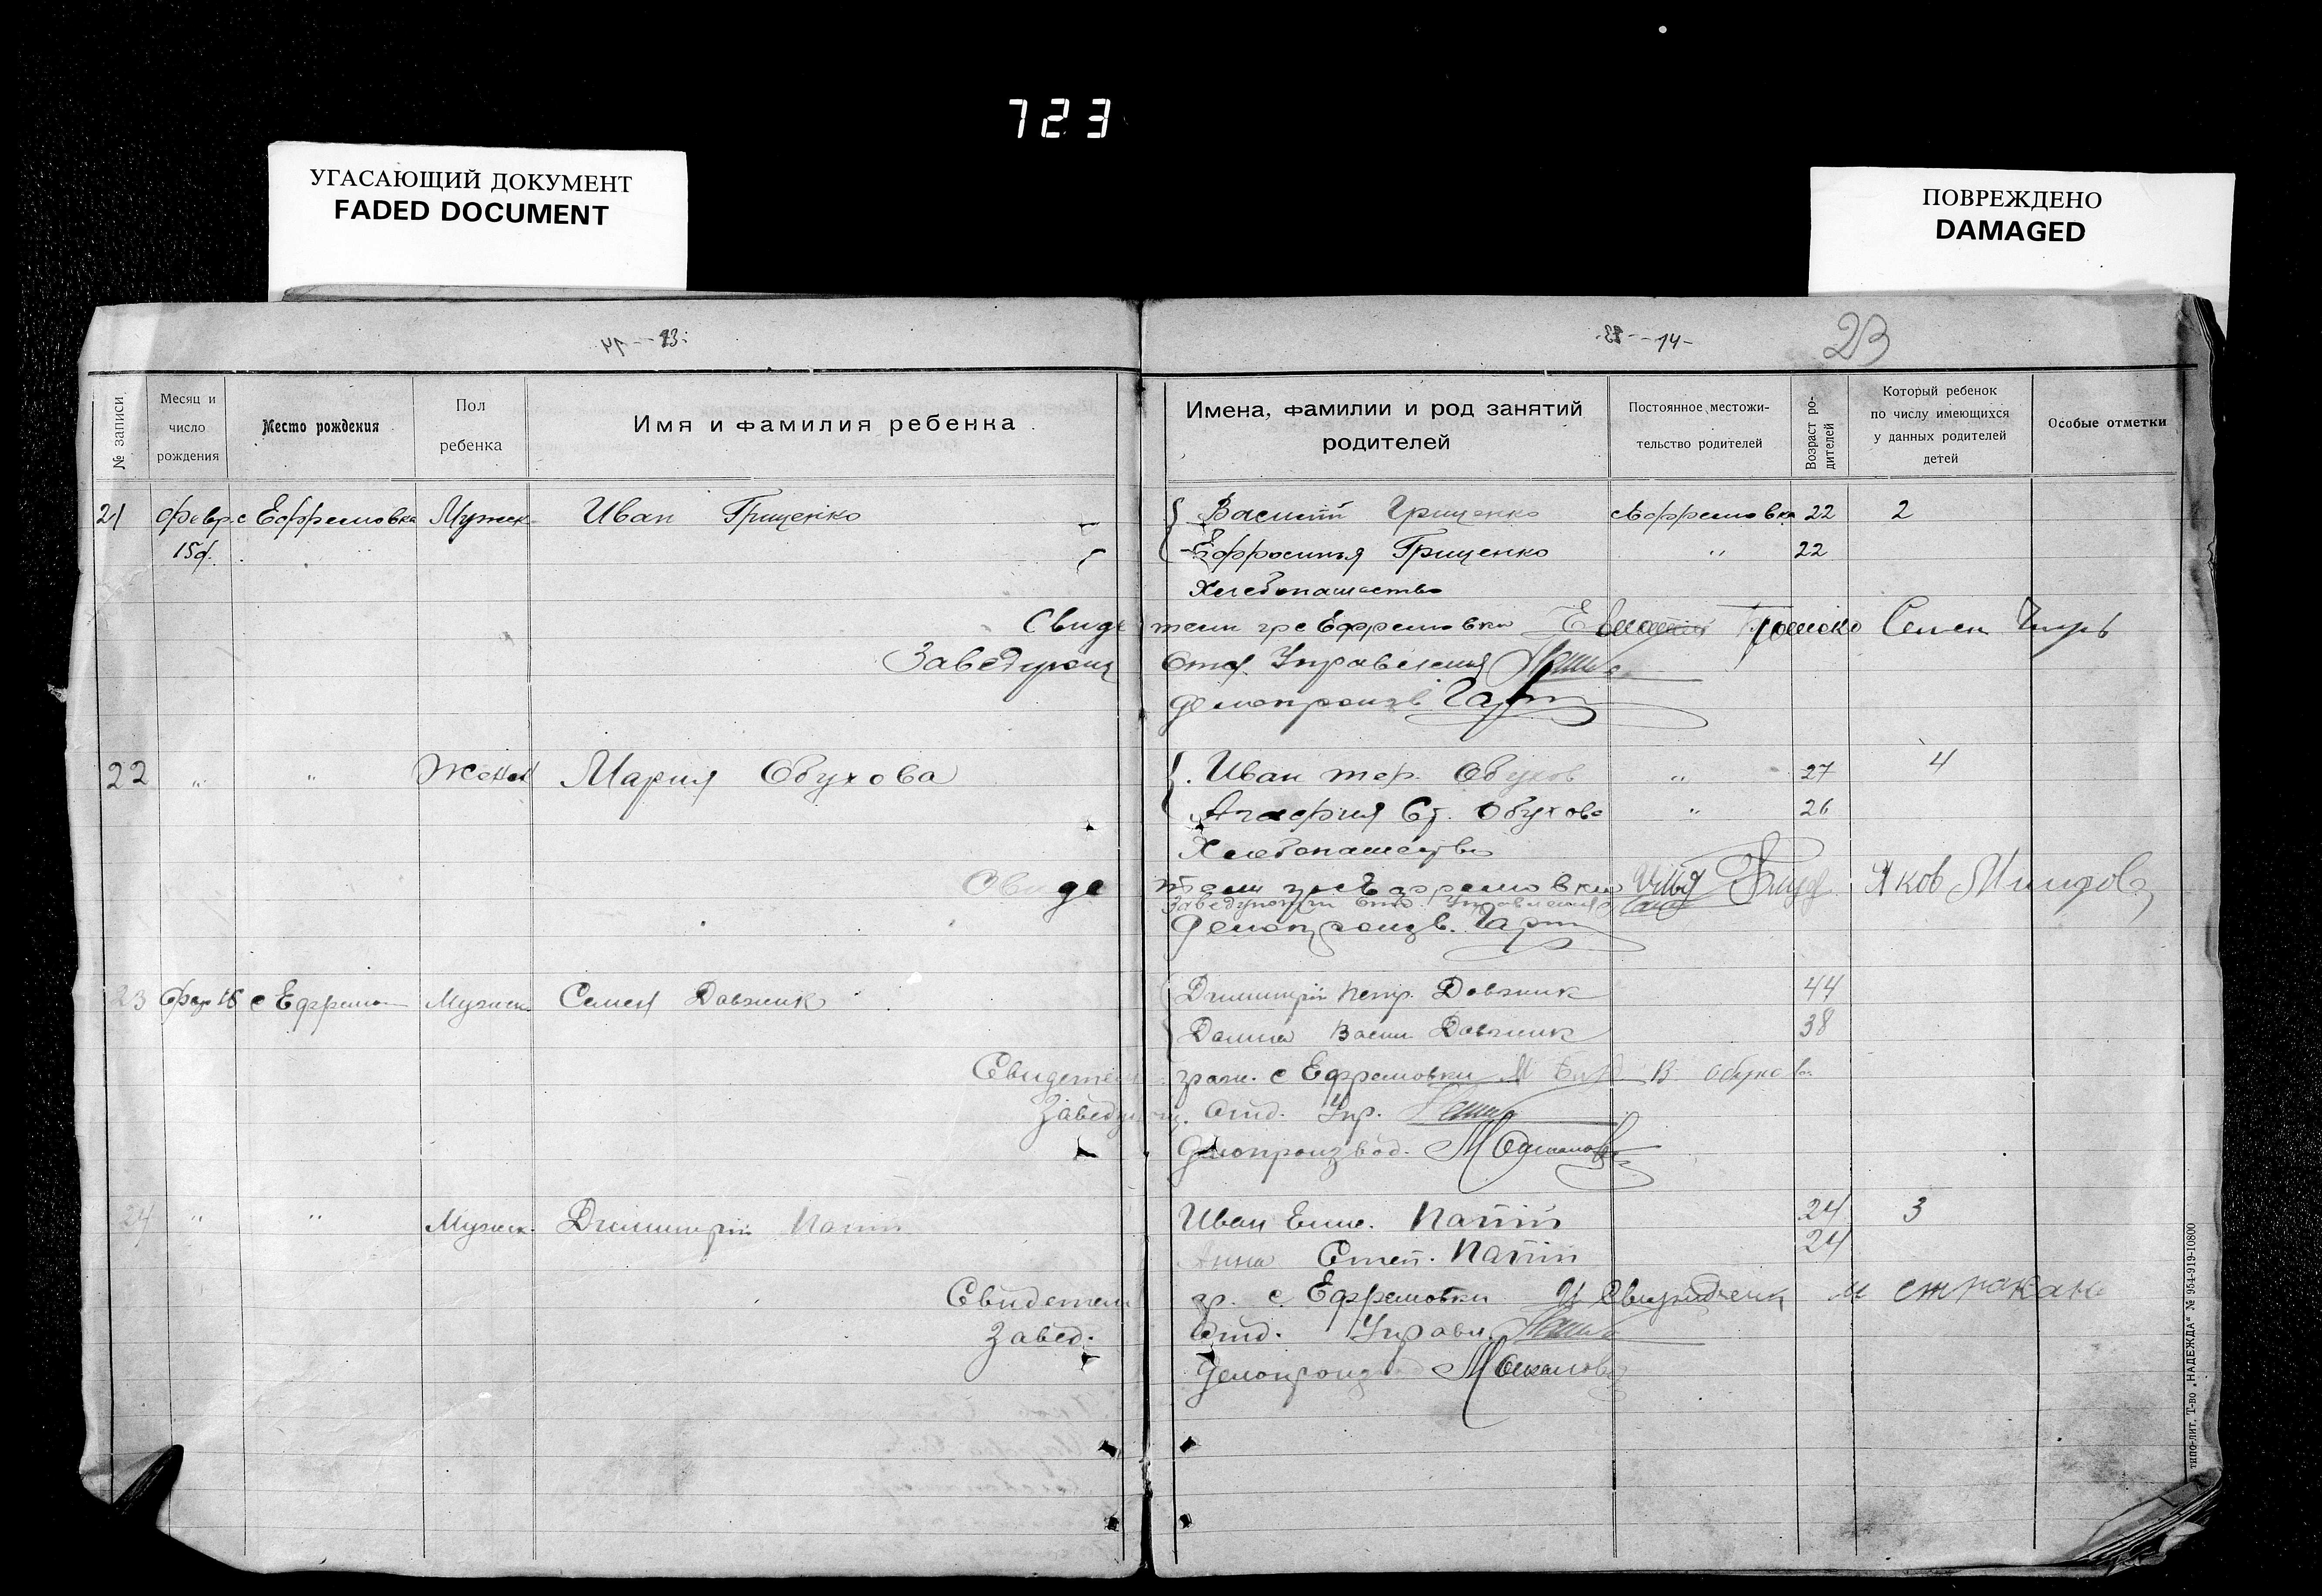 723
УГАСАЮЩИЙ ДОКУМЕНТ
FADED DOCUMENT
ПОВРЕЖДЕНО
DAMAGED
-14-
23
№ записи
Месяц и число рождения
Место рождения
Пол ребенка
Имя и фамилия ребенка
Имена, фамилии и род занятий родителей
Постоянное местожительство родителей
Возраст родителей
Который ребенок по числу имеющихся у данных родителей детей
Особые отметки
21 февр. с Ефремовка Мужск. Иван Грищенко Василий Грищенко с Ефремовка 22 2
15д. Ефросинья Грищенко " 22
Хлебопашество
Свидетели гр с Ефремовки Семен
Заведующ Отд. Управления
делопроизв Гарт
22 " " Женск Мария Обухова Иван тер. Обухов " 27 4
Агафия Обухова " 26
Хлебопашество
Свидетели гр с Ефремовки Яков
Заведующий Отд. Управления
Делопроизв. Гарт
23 Февр 16 с Ефремо Мужск. Семен Довжик Димитрий Петр. Довжик 44
Домна Васил Довжик 38
Свидетели граж. с Ефремовки В Обухов
Заведующ. Отд. Упр.
Делопроизвод.
24 " " Мужск. Димитрий Папий Иван Папий 24 3
Анна Степ. Папий 24
Свидетели гр. с Ефремовки
Завед. Отд. Управл.
Делопроизвод
типо-лит. Т-во „НАДЕЖДА“ № 954-919-10800